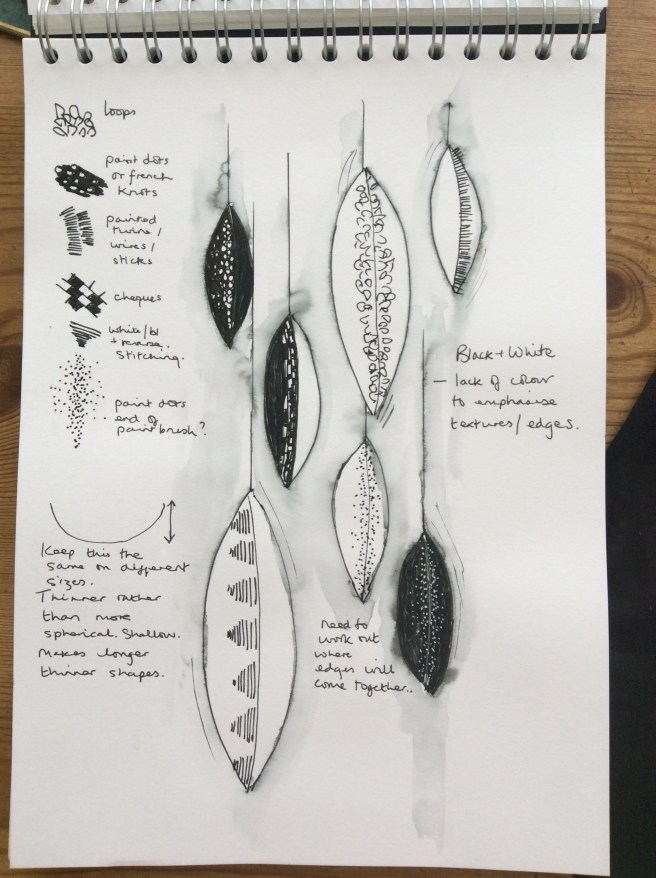 loops
paint dots
or french
knots
painted
twine /
wires /
sticks
cheques
white/bl
+ reverse.
stitching.
paint dots
end of
paint brush?
Black + White
— lack of colour
to emphasise
textures/edges.
Keep this the
same on different
sizes.
Thinner rather
than more
spherical. Shallow.
Makes longer
thinner shapes.
need to
work out
where
edges will
come together..